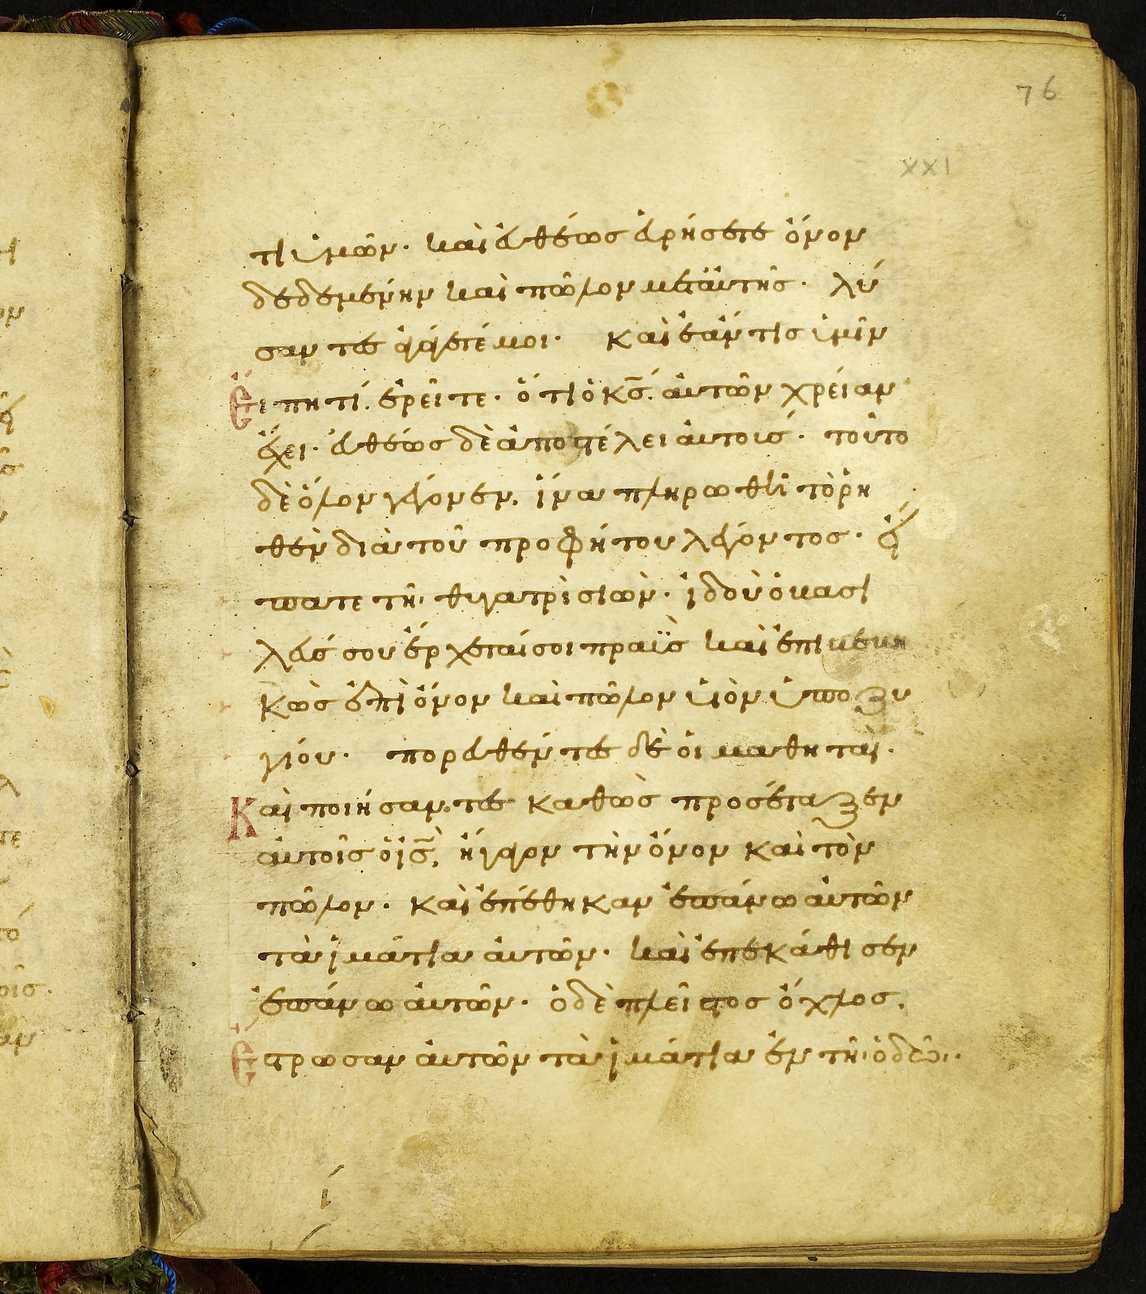 76
XXI
τι ὑμῶν· καὶ ἐυθέωσ ἑυρήσετε ὄνον
δεδεμένην καὶ πῶλον μετἀυτῆσ· λύ
σαντεσ ἀγάγετέ μοι· Καὶ ἐάν τισ ὑμῖν
Εἴπη τί. ἐρεῖτε· ὅτι ὁ κσ̅. ἀυτῶν χρείαν
ἔχει· ἐυθέωσ δὲ ἀποστέλει ἀυτούσ· τοῦτο
δὲ ὅλον γέγονεν. ἵνα πληρωθῆ τὸ ῥη
θὲν διὰ τοῦ προφήτου λέγοντοσ· εἴ
πατε τῆ θυγατρὶ σιών· ἰδοὺ ὁ βασι
λεύσ σου ἔρχεταί σοι πραῢσ καὶ ἐπιβεβη
κὼσ ἐπὶ ὄνον καὶ πῶλον ὑιὸν ὑποζυ
γίου· πορευθέντεσ δὲ ὁι μαθηταὶ·
Καὶ ποιήσαντεσ καθὼσ προσέταξεν
ἀυτοῖσ ὁ ισ̅, ἤγαγον τὴν ὄνον καὶ τὸν
πῶλον· καὶ ἐπέθηκαν ἐπάνω ἀυτῶν
τὰ ἱμάτια ἀυτῶν· καὶ ἐπεκάθισεν
ἐπάνω ἀυτῶν· ὁ δὲ πλεῖστοσ ὄχλοσ.
Ἔστρωσαν ἀυτῶν τὰ ἱμάτια ἐν τῆ ὁδῶ·